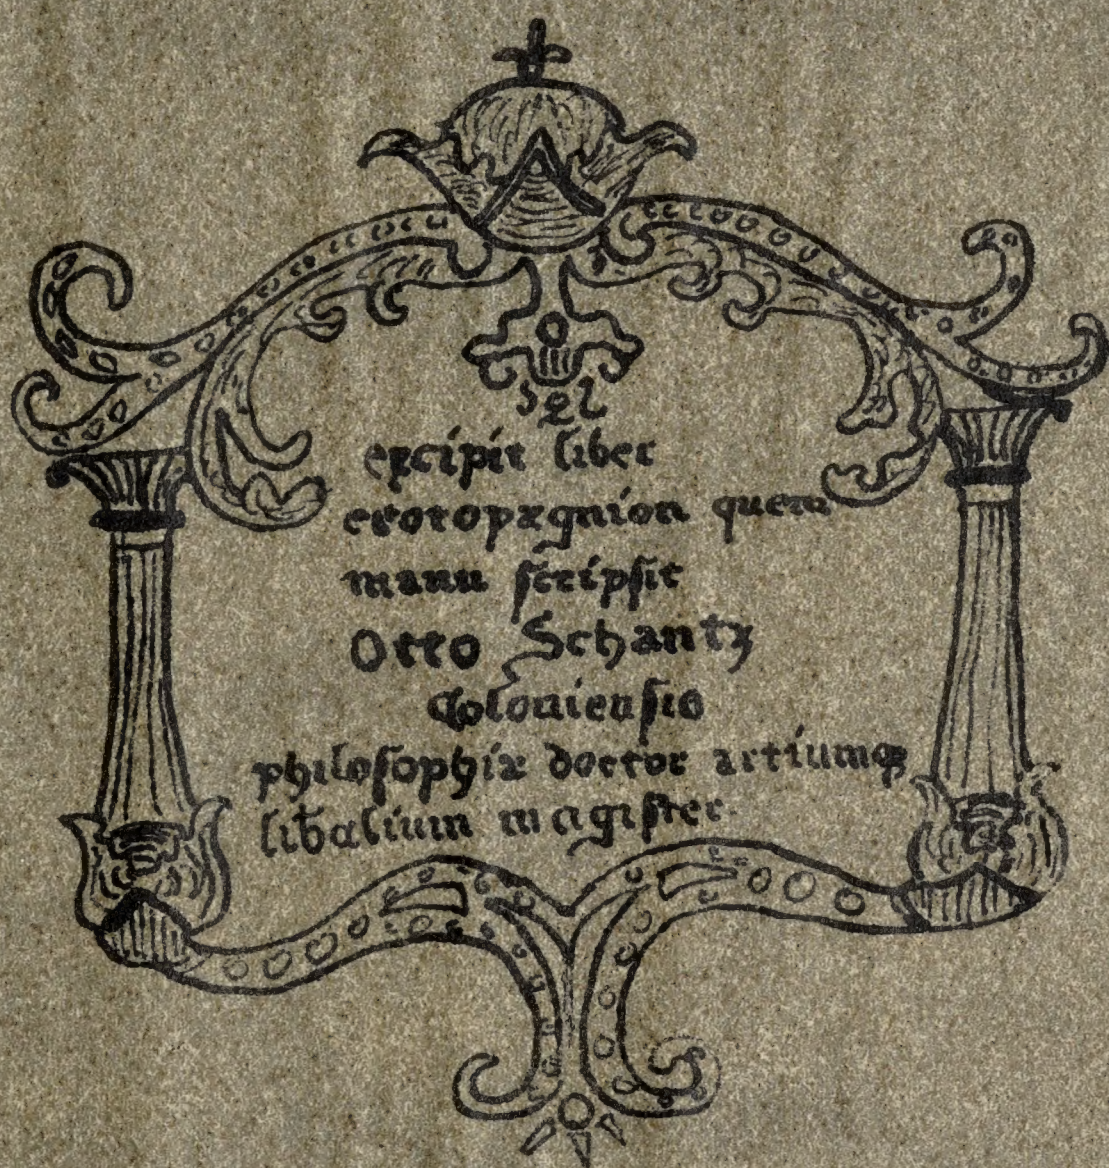 excipit liber
erotopægnion quem
manu scripsit
Otto Schantz
Coloniensis
philosophiæ doctor artiumqꝫ
lib̄alium magister